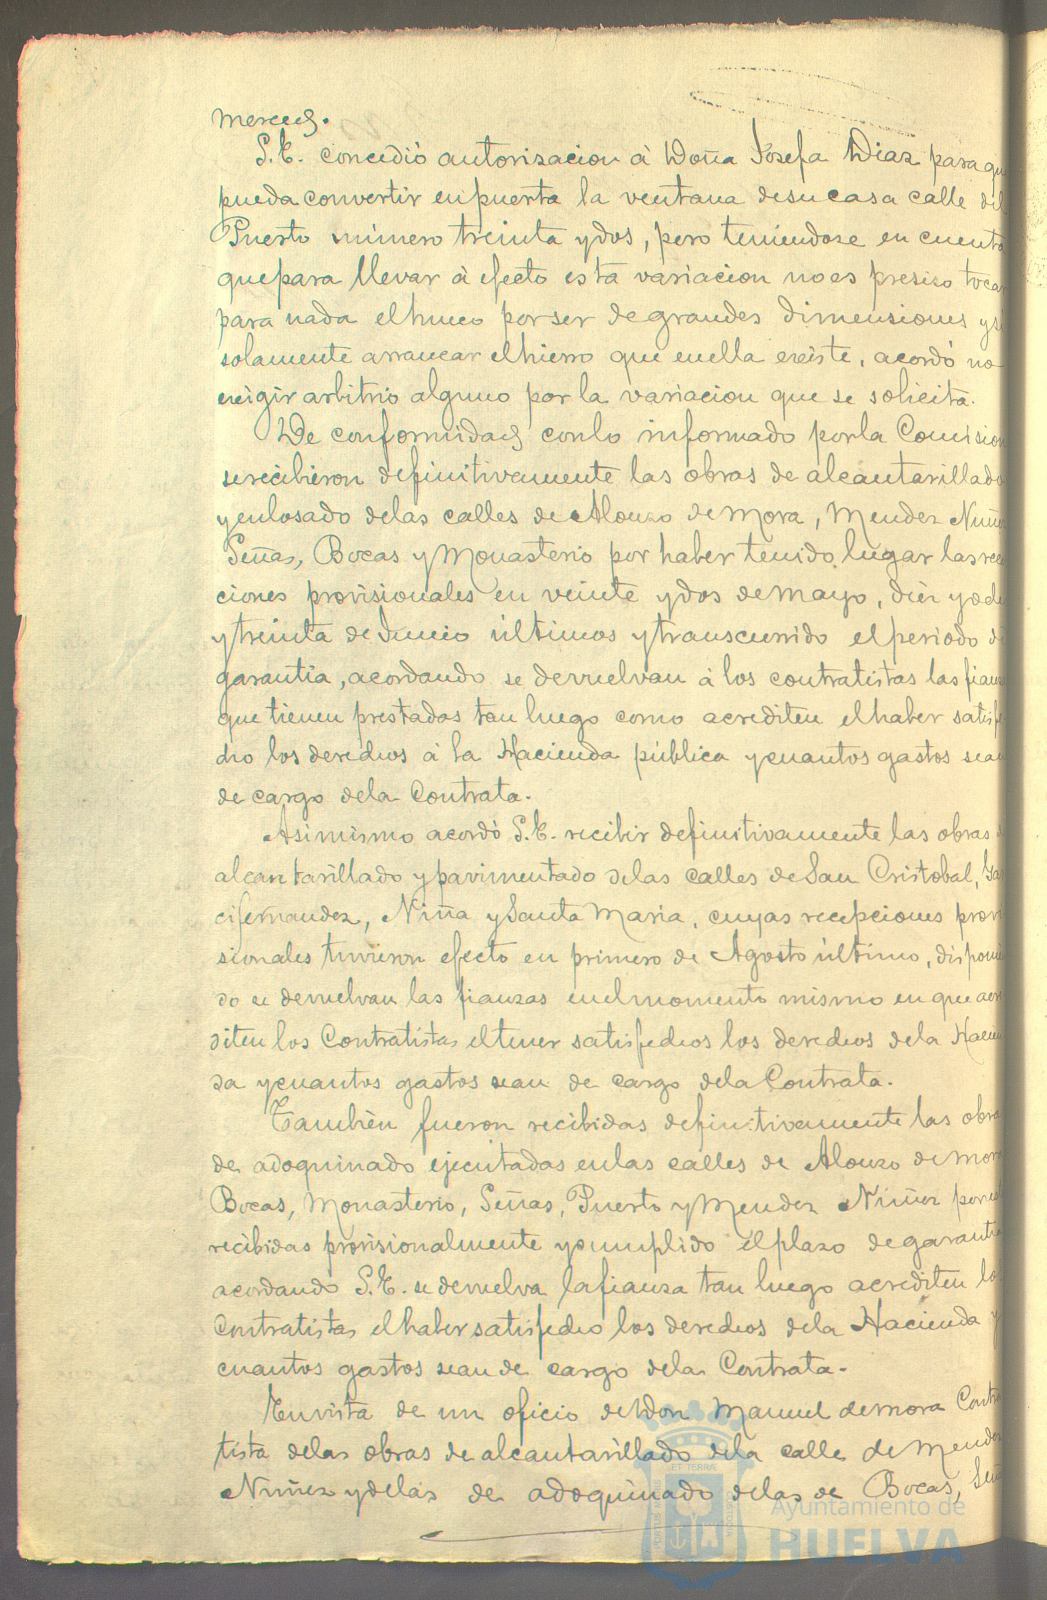 Merced.
S.E. concedió autorizacion á Doña Josefa Diaz para que
pueda convertir en puerta la ventana de su casa calle del
Puerto número treinta y dos, pero teniendose en cuenta
que para llevar á efecto esta variacion no es presiso tocar
para nada el hueco por ser de grandes dimensiones y si
solamente arrancar el hierro que en ella existe, acordó no
exigir arbitrio alguno por la variacion que se solicita.
De conformidad con lo informado por la Comision
se recibieron definitivamente las obras de alcantarillado
y enlosado de las calles de Alonso de Mora, Mendez Nuñez
Señas, Bocas y Monasterio por haber tenido lugar las recep
ciones provisionales en veinte y dos de Mayo, diez y ocho
y treinta de Junio últimos y transcurrido el periodo de
garantia, acordando se devuelvan á los contratistas las fianzas
que tienen prestadas tan luego como acrediten el haber satisfe
cho los derechos á la Hacienda pública y cuantos gastos sean
de cargo de la Contrata.
Asimismo acordó S.E. recibir definitivamente las obras de
alcantarillado y pavimentado de las calles de San Cristobal, Gar
cifernandez, Niña y Santa Maria, cuyas recepciones provi
sionales tuvieron efecto en primero de Agosto último, disponien
do se devuelvan las fianzas en el momento mismo en que acre
diten los Contratistas el tener satisfechos los derechos de la Hacien
da y cuantos gastos sean de cargo de la Contrata.
También fueron recibidas definitivamente las obras
de adoquinado ejecutadas en las calles de Alonso de Mora
Bocas, Monasterio, Señas, Puerto y Mendez Nuñez por
recibidas provisionalmente y cumplido el plazo de garantia
acordando S.E. se devuelva la fianza tan luego acrediten los
Contratistas el haber satisfecho los derechos de la Hacienda y
cuantos gastos sean de cargo de la Contrata.
En vista de un oficio de Don Manuel de Mora Contra
tista de las obras de alcantarillado de la calle de Mendez
Nuñez y de las de adoquinado de las de Bocas, Señ
Ayuntamiento de
HUELVA